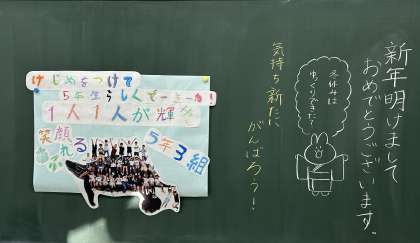 新年明けまして
おめでとうございます。
冬休みは
ゆっくりできた?
気持ち新たに
がんばろう!
けじめをつけて
5年生らしく
1人1人が輝く
笑顔
あふれる
5年3組